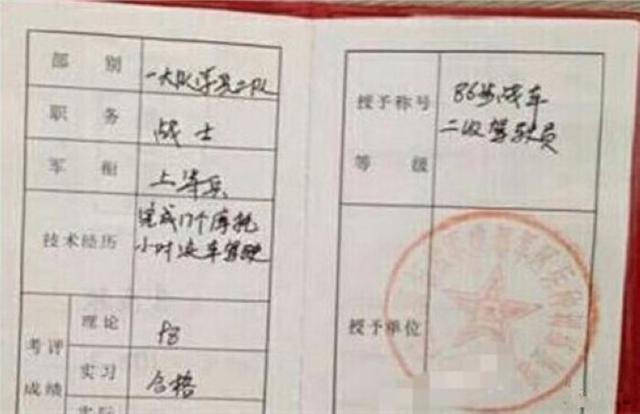 部别 一大队学兵二队
职务 战士
军衔 上等兵
技术经历 完成17个摩托
小时汽车驾驶
考评
成绩
理论
实习 合格
授予称号
等级
86步战车
二级驾驶员
授予单位